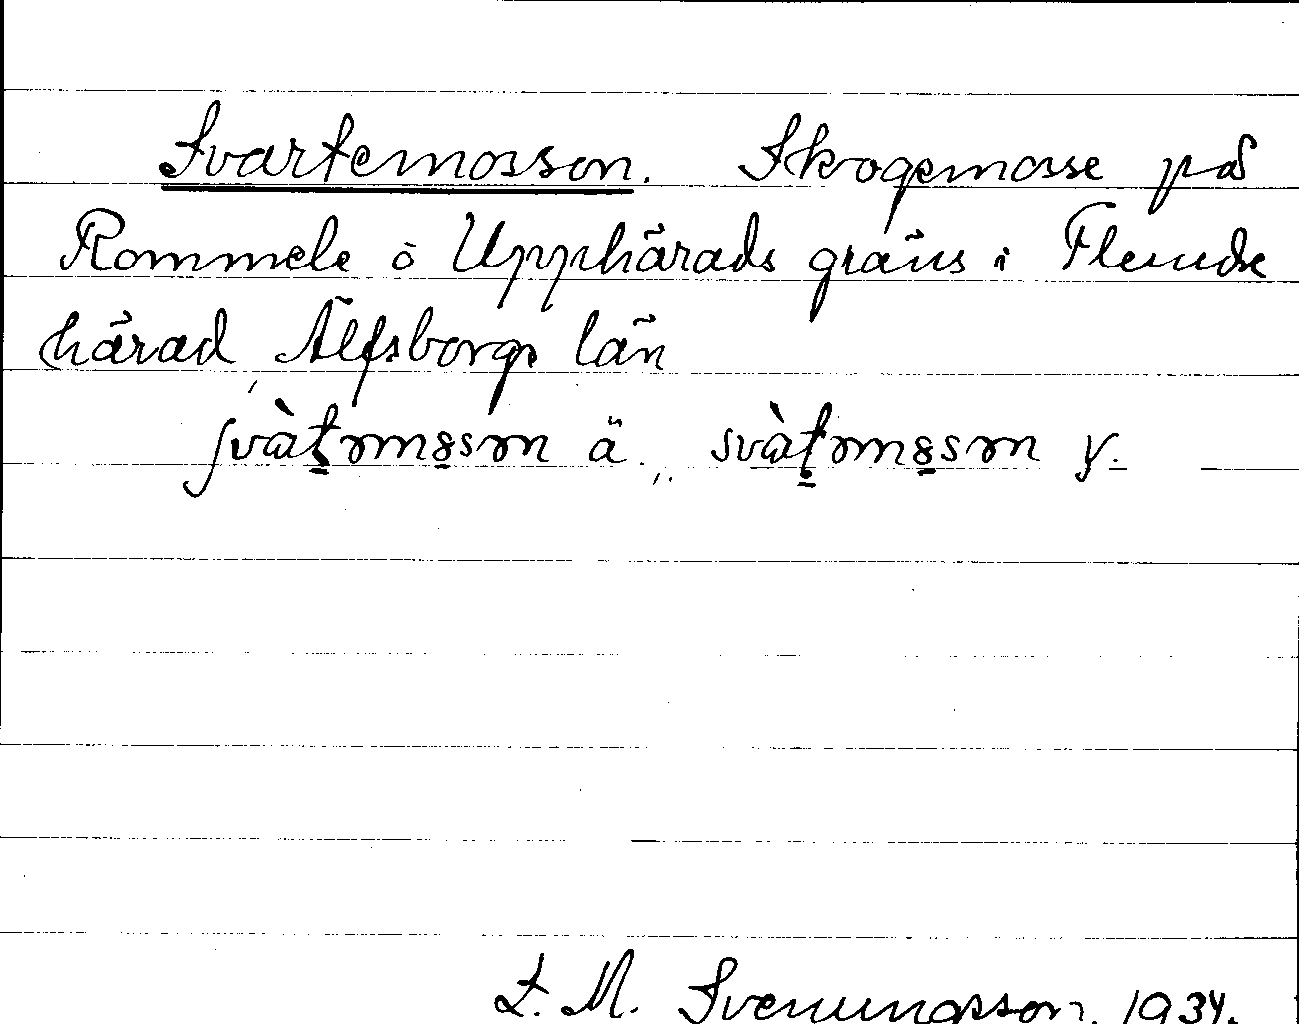 Svartemosson. Skogsmosse på
Rommele ö Upphärads gräns i Flundre
härad, Älfsborgs län
ʃvàt̠əm8̠sən ä., svàt̠əm8̠sən y.
F. M. Svenungsson. 1934.